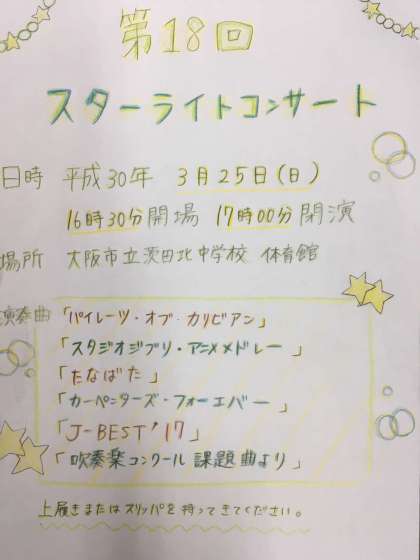 第18回
スターライトコンサート
日時 平成30年 3月25日(日)
16時30分開場 17時00分開演
場所 大阪市立茨田北中学校 体育館
演奏曲「パイレーツ・オブ・カリビアン」
「スタジオジブリ・アニメメドレー」
「たなばた」
「カーペンターズ・フォーエバー」
「J-BEST'17」
「吹奏楽コンクール 課題曲より」
上履きまたはスリッパを持ってきてください。